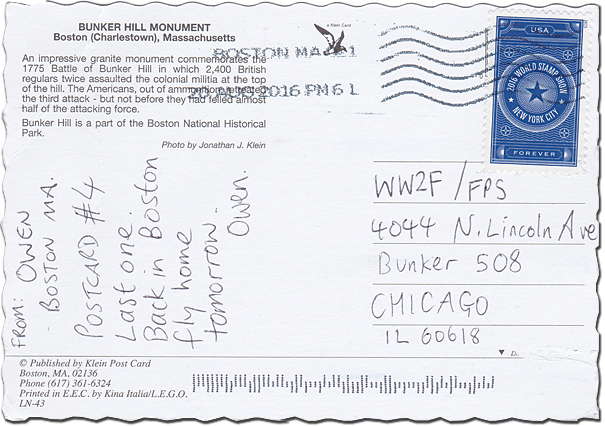 BUNKER HILL MONUMENT
Boston (Charlestown), Massachusetts
An impressive granite monument commemorates the
1775 Battle of Bunker Hill in which 2,400 British
regulars twice assaulted the colonial militia at the top
of the hill. The Americans, out of ammunition, retreated
the third attack - but not before they had felled almost
half of the attacking force.
Bunker Hill is a part of the Boston National Historical
Park.
Photo by Jonathan J. Klein
a Klein Card
BOSTON MA 021
2016 PM 6 L
USA
2016 WORLD STAMP SHOW
NEW YORK CITY
FOREVER
FROM: OWEN
- BOSTON MA.
POSTCARD #4
Last one.
Back in Boston
fly home
tomorrow.
Owen.
WW2F/FPS
4044 N. Lincoln Ave
Bunker 508
CHICAGO
IL 60618
© Published by Klein Post Card
Boston, MA, 02136
Phone (617) 361-6324
Printed in E.E.C. by Kina Italia/L.E.G.O.
LN-43